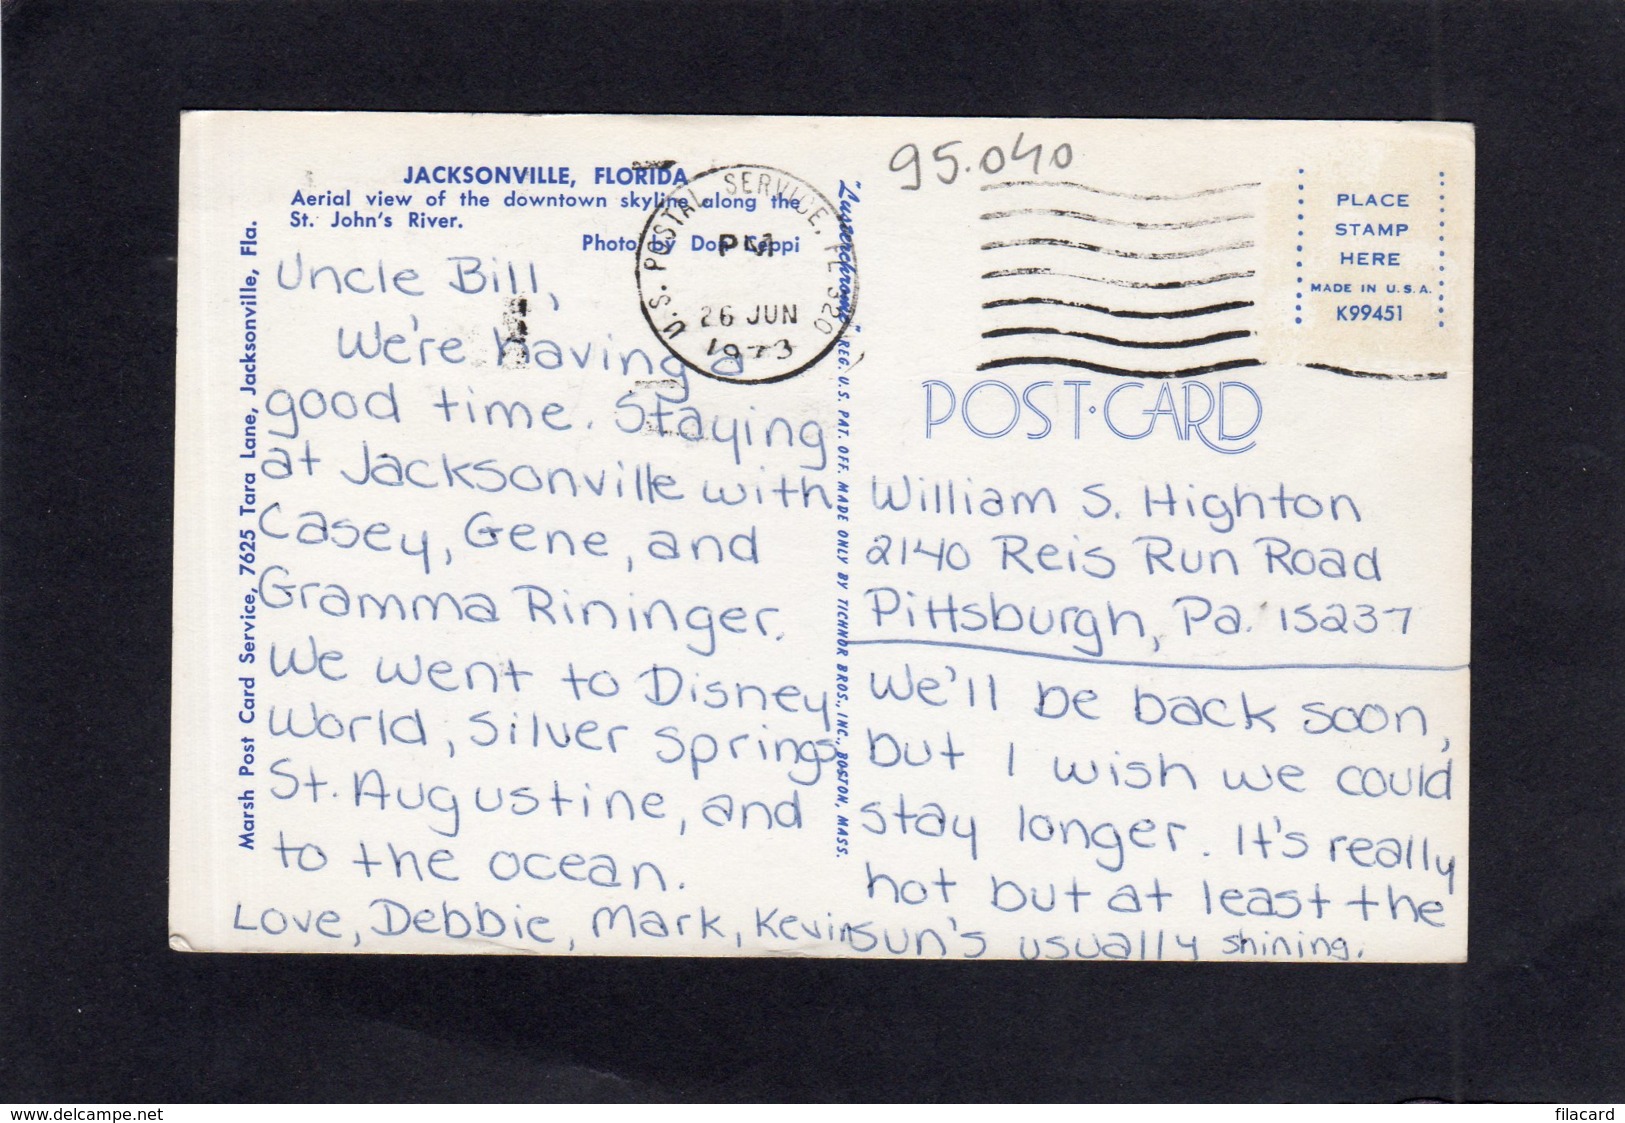 JACKSONVILLE, FLORIDA
Aerial view of the downtown skyline along the
St. John's River.
Photo by Don Ceppi
Marsh Post Card Service, 7625 Tara Lane, Jacksonville, Fla.
Uncle Bill,
We're having a
good time. Staying
at Jacksonville with
Casey, Gene, and
Gramma Rininger.
We went to Disney
World, Silver Springs
St. Augustine, and
to the ocean.
Love, Debbie, Mark, Kevin
U.S. POSTAL SERVICE, FL 320
PM
26 JUN
1973
"Lusterchrome" REG. U.S. PAT. OFF. MADE ONLY BY TICHNOR BROS., INC., BOSTON, MASS.
95.040
PLACE
STAMP
HERE
MADE IN U.S.A.
K99451
POST·CARD
William S. Highton
2140 Reis Run Road
Pittsburgh, Pa. 15237
We'll be back soon,
but I wish we could
stay longer. It's really
hot but at least the
sun's usually shining.
www.delcampe.net
filacard